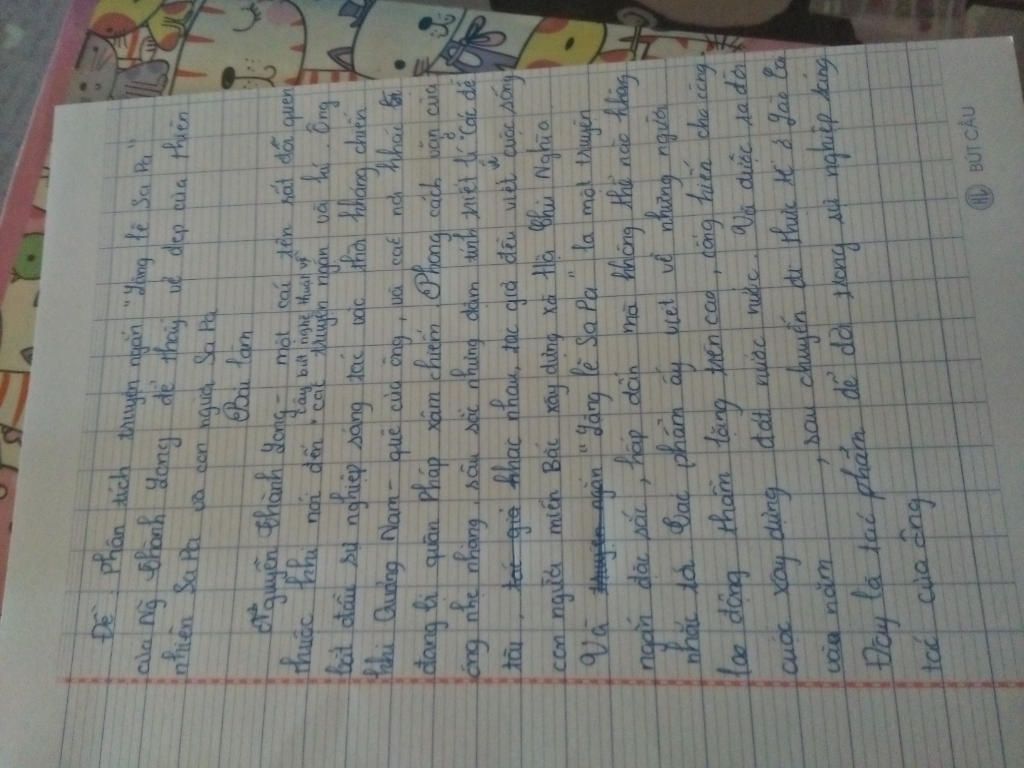 Đề: Phân tích truyện ngắn "Lặng lẽ Sa Pa"
của Ng Thành Long để thấy vẻ đẹp của thiên
nhiên Sa Pa và con người Sa Pa
Bài làm
Nguyễn Thành Long - một cái tên rất đỗi quen
thuộc khi nói đến cây bút nghệ thuật về các truyện ngắn và kí. Ông
bắt đầu sự nghiệp sáng tác vào thời kháng chiến
khi Quảng Nam - quê của ông, và các nơi khác
đang bị quân Pháp xâm chiếm. Phong cách văn của
ông nhẹ nhàng, sâu sắc nhưng đậm tính triết lí. Các đề
tài, tác giả khác nhau, tác giả đều viết về cuộc sống
con người miền Bắc xây dựng xã Hội Chủ Nghĩa.
Và truyện ngắn "Lặng lẽ Sa Pa" là một truyện
ngắn đặc sắc, hấp dẫn mà không thể nào không
nhắc tới. Tác phẩm ấy viết về những người
lao động thầm lặng trên cao, cống hiến cho công
cuộc xây dựng đất nước. Và được ra đời
vào năm , sau chuyến đi thực tế ở Lào Cai
Đây là tác phẩm để đời trong sự nghiệp sáng
tác của ông
BÚT CÂU